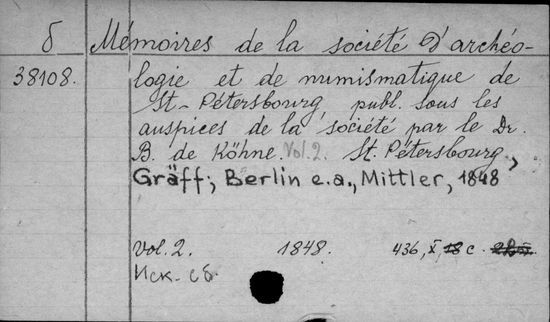 б Mémoires de la société d'archéo-
38108. logie et de numismatique de
St-Pétersbourg, publ. sous les
auspices de la société par le Dr.
B. de Köhne. Vol. 2. St. Pétersbourg,
Gräff; Berlin e.a., Mittler, 1848
Vol. 2. 1848. 436, X, 18 с.
Иск. сб.